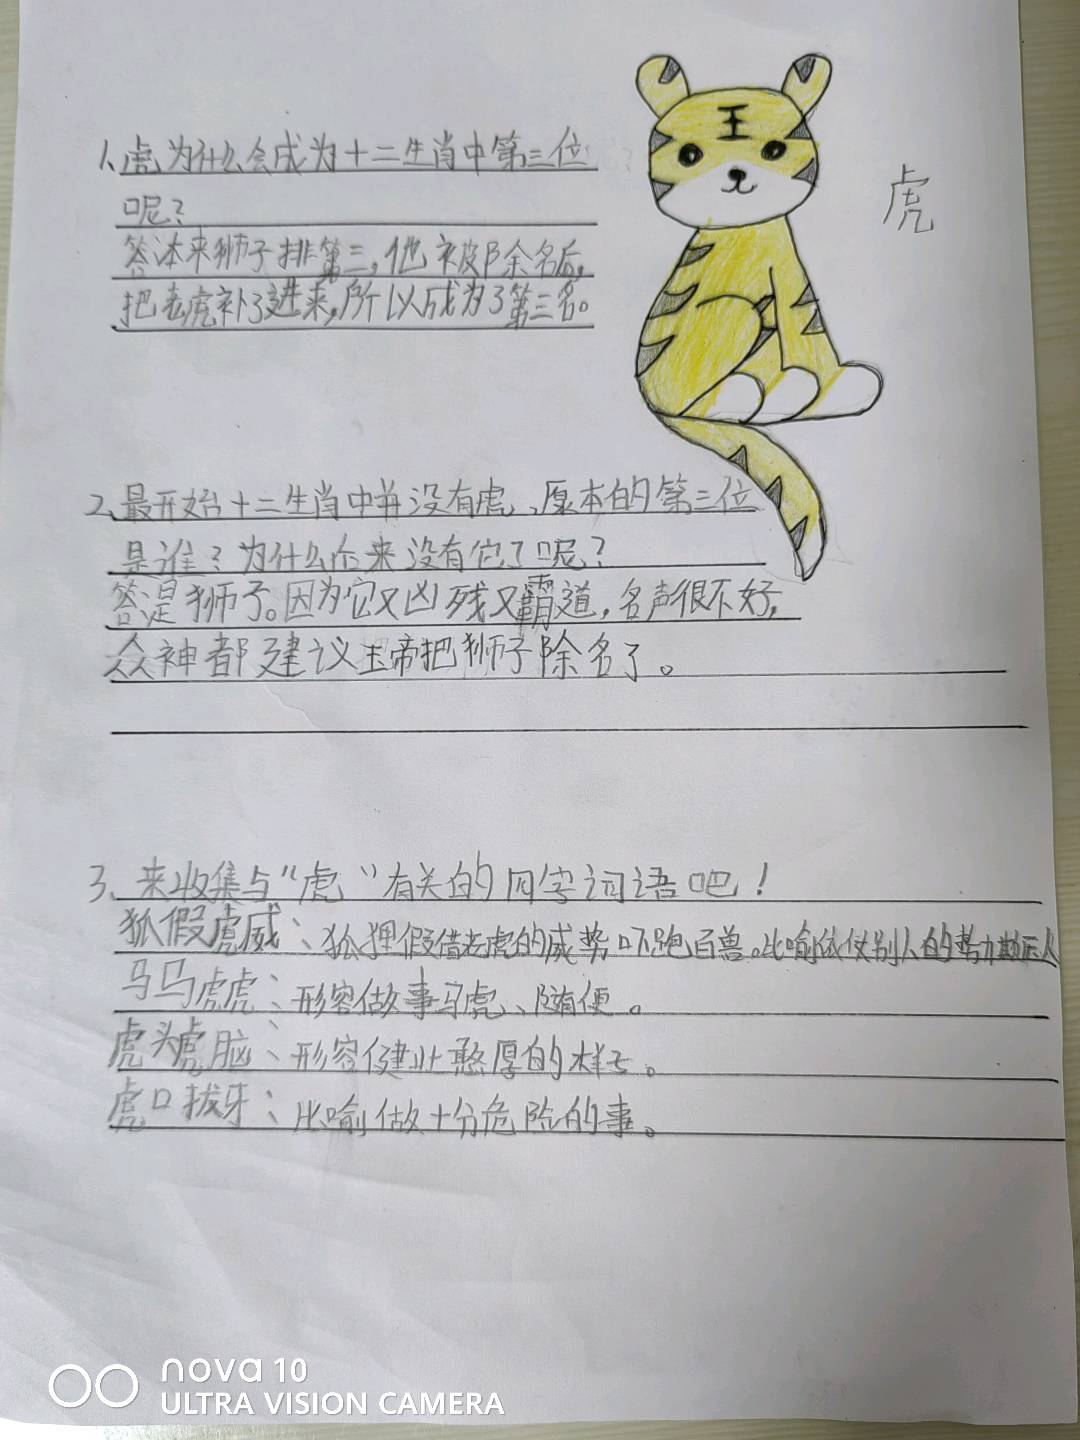 王
虎
1、虎为什么会成为十二生肖中第三位
呢？
答:本来狮子排第三，他被除名后，
把老虎补了进来，所以成为了第三名。
2、最开始十二生肖中并没有虎、原本的第三位
是谁？为什么后来没有它了呢？
答:是狮子。因为它又凶残又霸道，名声很不好，
众神都建议玉帝把狮子除名了。
3、来收集与“虎”有关的四字词语吧！
狐假虎威：狐狸假借老虎的威势吓跑百兽。比喻依仗别人的势力欺压人
马马虎虎：形容做事马虎、随便。
虎头虎脑：形容健壮憨厚的样子。
虎口拔牙：比喻做十分危险的事。
nova 10
ULTRA VISION CAMERA